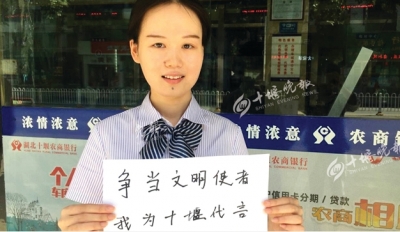 十堰晚报
SHIYAN EVENING NEWS
浓情浓意
浓情浓意
农商
湖北十堰农商银行
农商银行
信用卡分期 / 贷款
争当文明使者
我为十堰代言